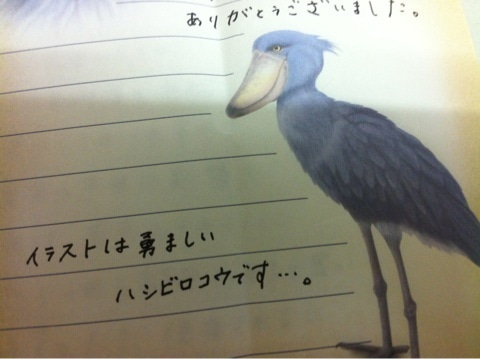 ありがとうございました。
イラストは勇ましい
ハシビロコウです…。